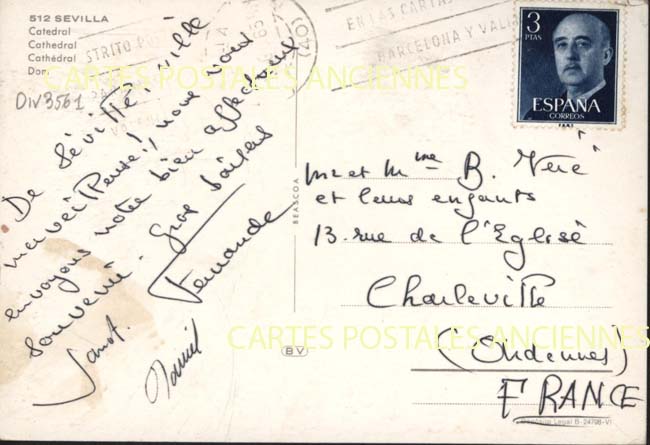 512 SEVILLA
Catedral
Cathedral
Cathédral
Dom
Div3561
STRITO
EN LAS CARTAS
BARCELONA Y VAL
(40)
3
PTAS
ESPAÑA
CORREOS
CARTES POSTALES ANCIENNES
De Séville, ville
merveilleuse!, nous vous
envoyons notre bien affectueux
souvenir. Gros baisers
Fernande
Daniel
BEASCOA
BV
Mr et Mme B.
et leurs enfants
13. rue de l'Eglise
Charleville
(Ardennes)
FRANCE
CARTES POSTALES ANCIENNES
Legal B-24798-VI